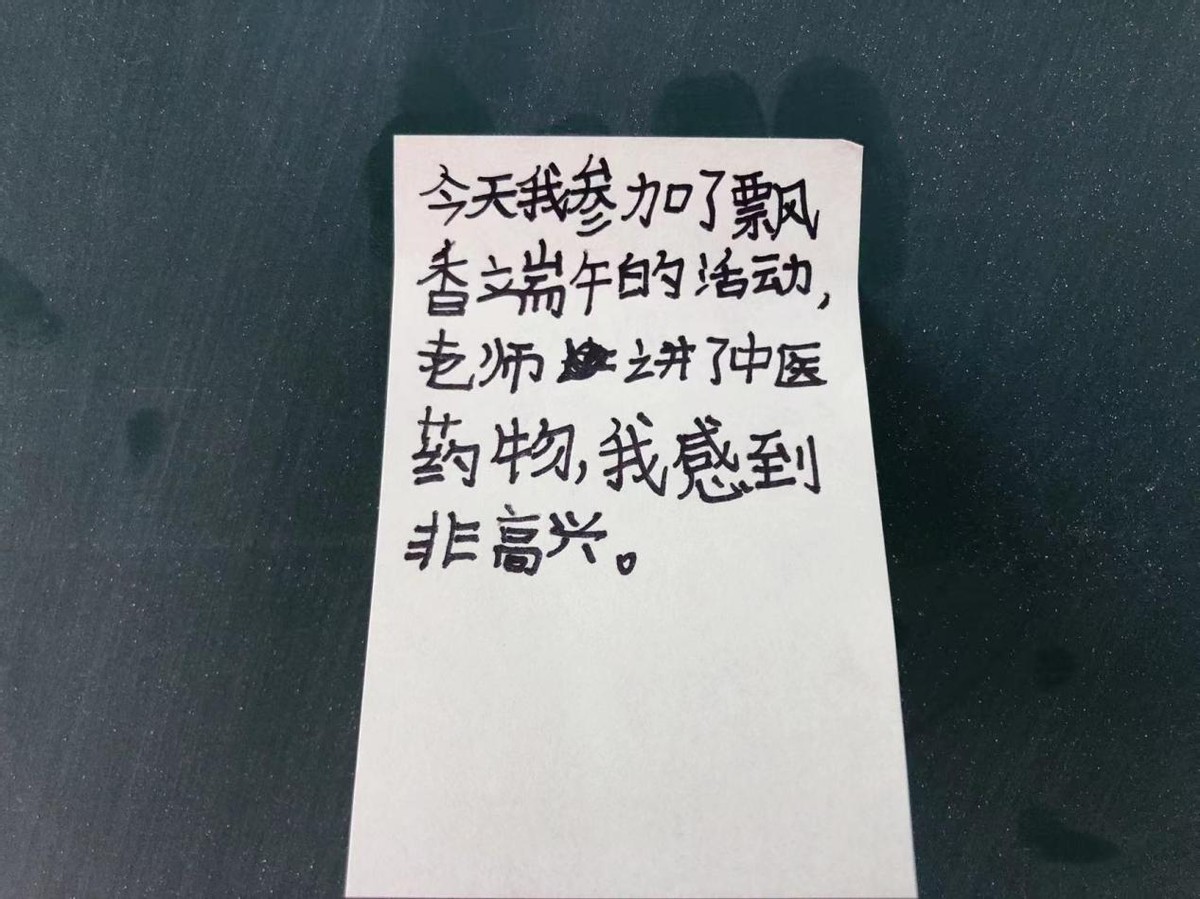 今天我参加了飘
香立端午的活动,
老师讲了中医
药物,我感到
非高兴。